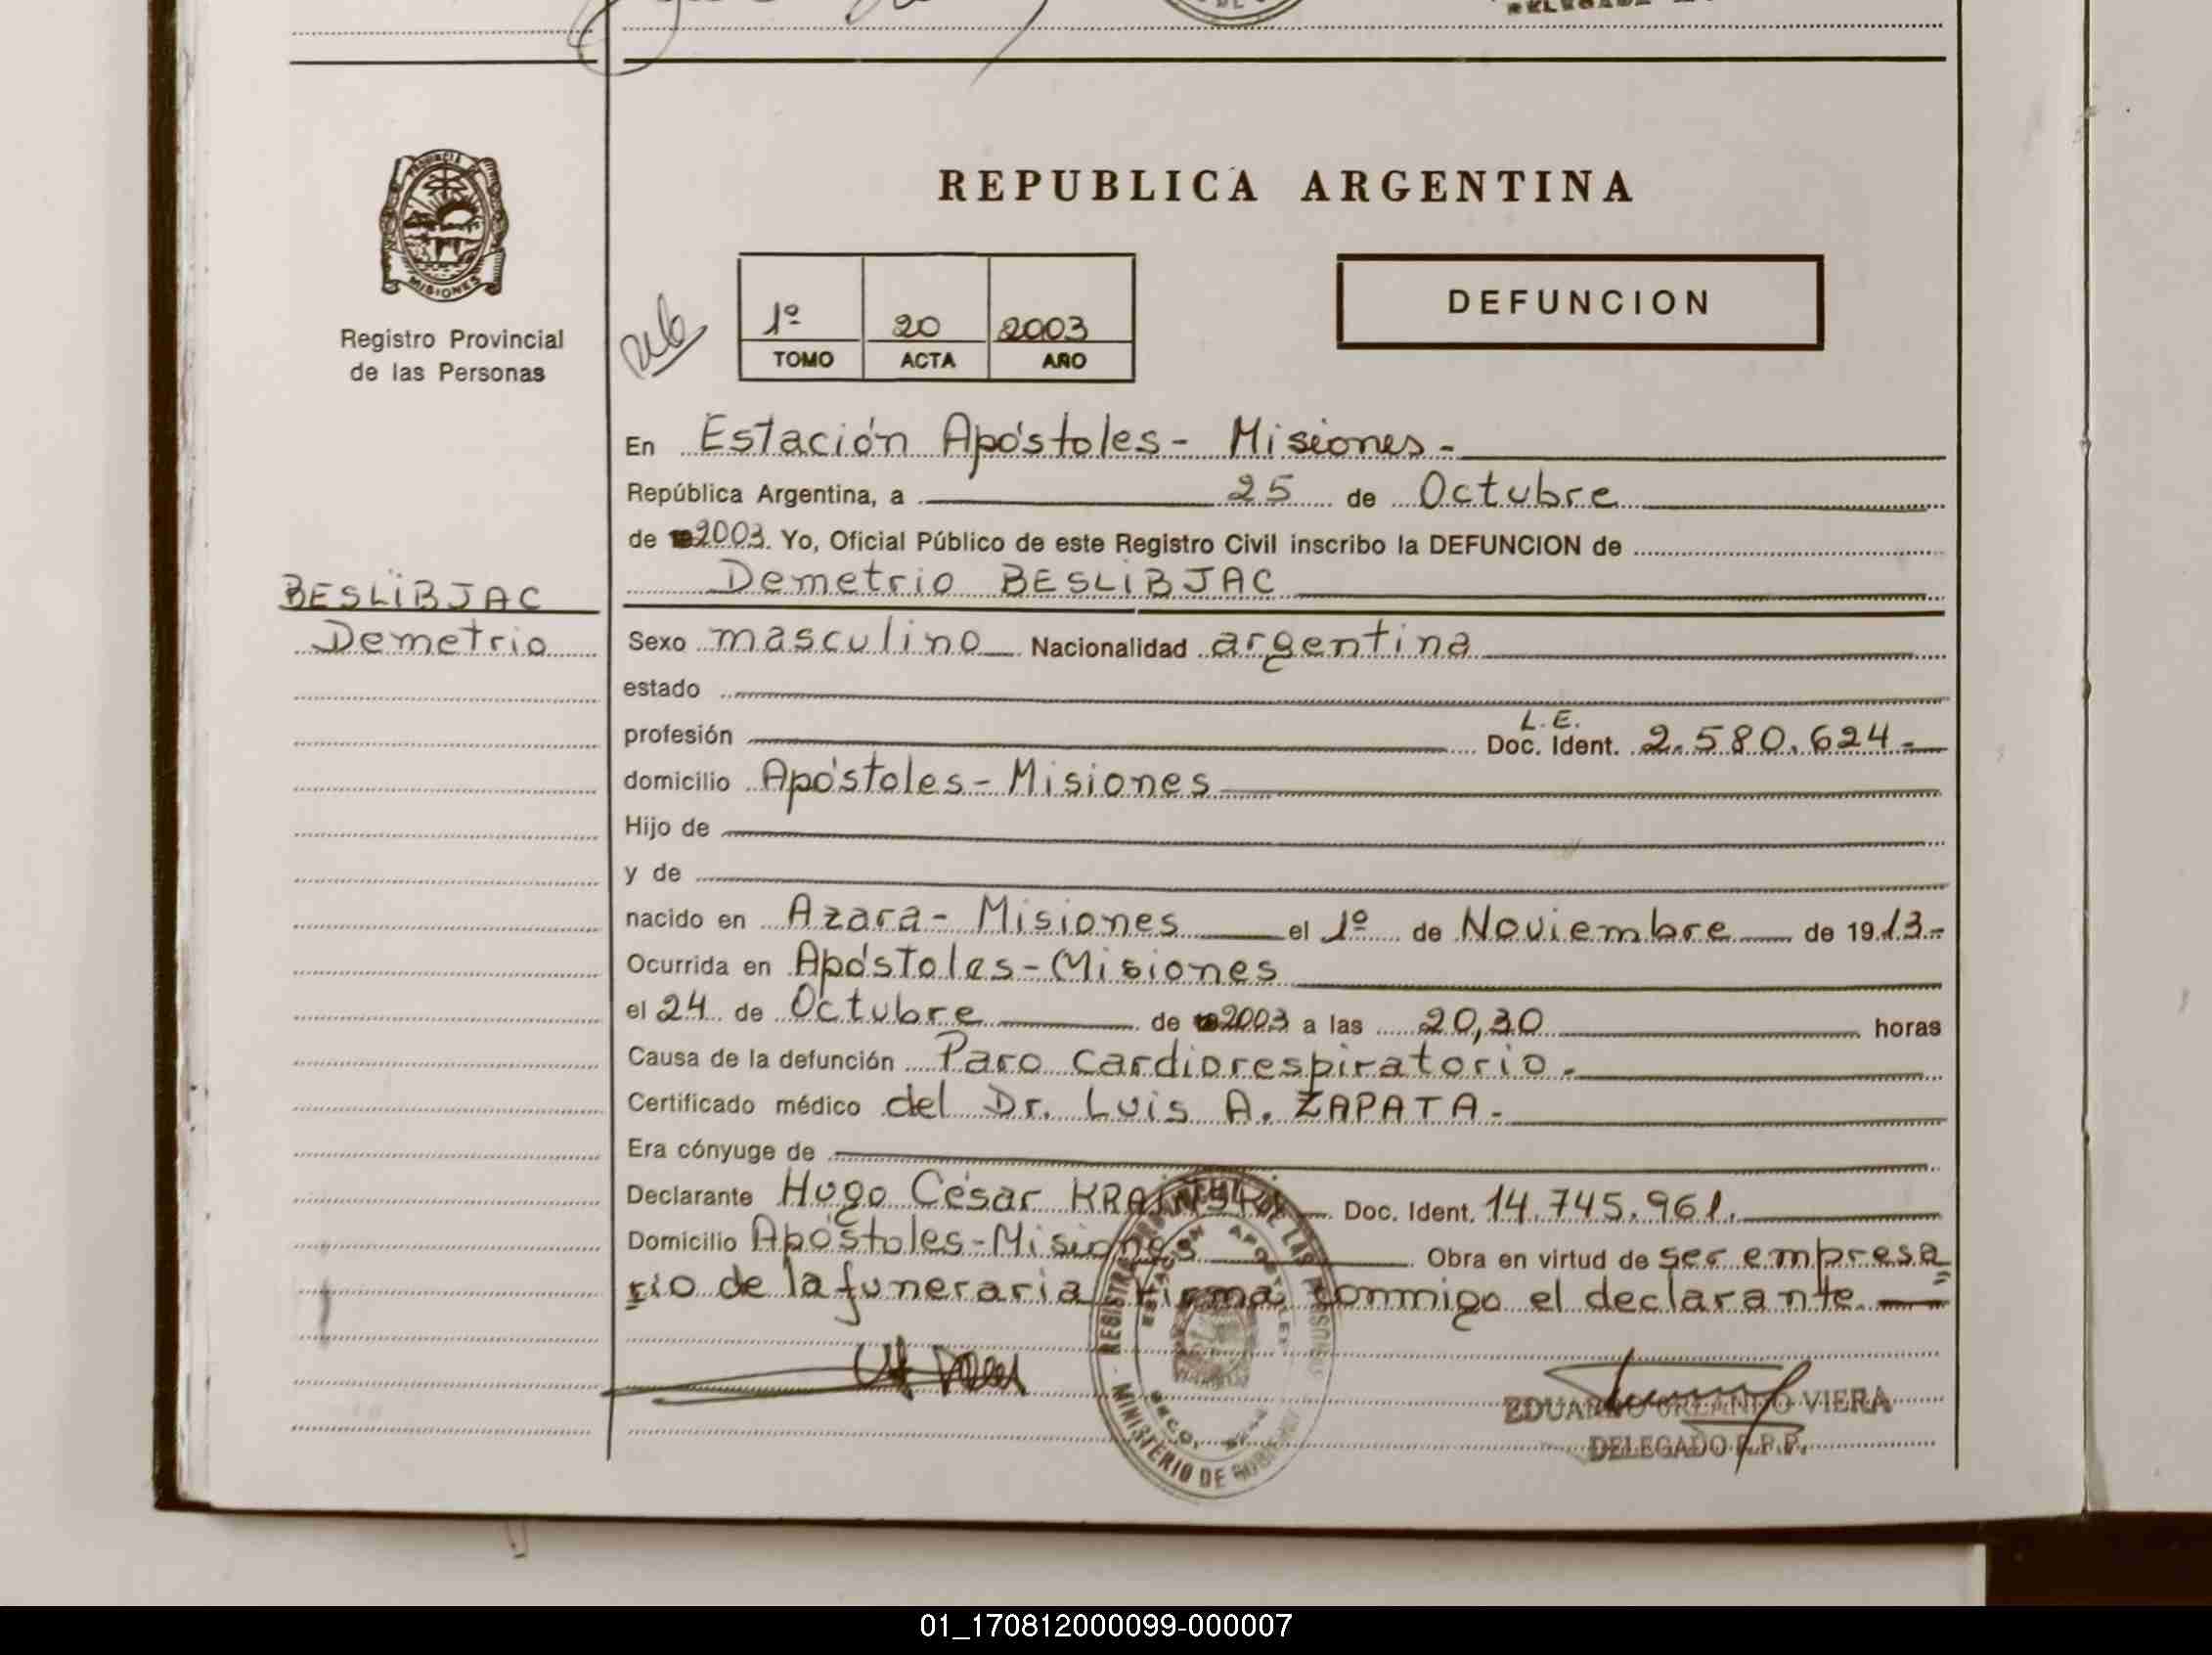 REPUBLICA ARGENTINA
PROVINCIA DE
MISIONES
Registro Provincial
de las Personas
1º 20 2003
TOMO ACTA AÑO
DEFUNCION
En Estación Apóstoles - Misiones -
República Argentina, a 25 de Octubre
de 2003. Yo, Oficial Público de este Registro Civil inscribo la DEFUNCION de
Demetrio BESLIBJAC
BESLIBJAC
Demetrio
Sexo masculino Nacionalidad argentina
estado
profesión L.E. Doc. Ident. 2.580.624 -
domicilio Apóstoles - Misiones
Hijo de
y de
nacido en Azara - Misiones el 1º de Noviembre de 1913 -
Ocurrida en Apóstoles - Misiones
el 24 de Octubre de 2003 a las 20,30 horas
Causa de la defunción Paro cardiorespiratorio -
Certificado médico del Dr. Luis A. ZAPATA -
Era cónyuge de
Declarante Hugo César KRAINSKI Doc. Ident. 14.745.961.
Domicilio Apóstoles - Misiones Obra en virtud de ser empresa
rio de la funeraria firma conmigo el declarante.
REGISTRO PROVINCIAL DE LAS PERSONAS
ESTACION APOSTOLES
MINISTERIO DE GOBIERNO
EDUARDO ORLANDO VIERA
DELEGADO R.P.P.
01_170812000099-000007